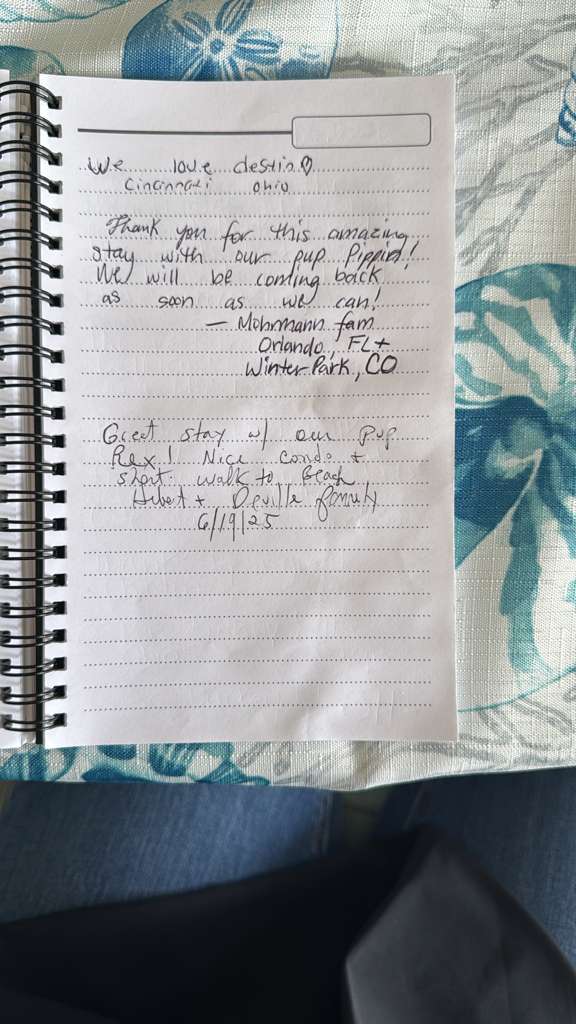 We love destin♡
Cincinnati ohio
Thank you for this amazing
stay with our pup Pippin!
We will be coming back
as soon as we can!
— Mohrmann fam
Orlando, FL +
Winter Park, CO
Great stay w/ our pup
Rex! Nice condo +
short walk to Beach
+ Deville family
6/19/25